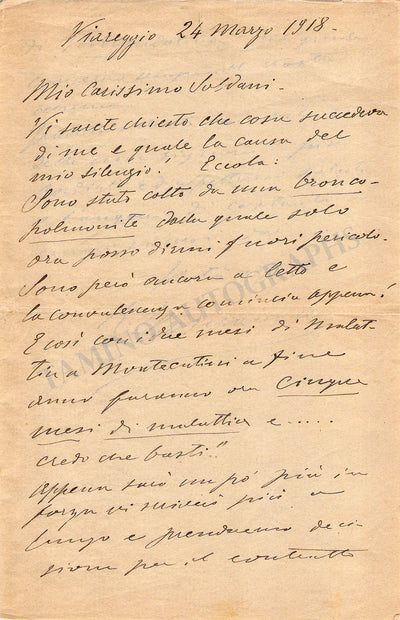 Viareggio 24 Marzo 1918 -
Mio Carissimo Soldani -
Vi sarete chiesto che cosa succedeva
di me e quale la causa del
mio silenzio! Eccola:
Sono stato colto da una bronco-
polmonite dalla quale solo
ora posso dirmi fuori pericolo.
Sono però ancora a letto e
la convalescenza comincia appena!
E così con due mesi di malat-
tia a Montecatini a fine
anno faranno ora cinque
mesi di malattia e .....
credo che basti!!
Appena sarò un pò più in
forza vi scriverò più a
lungo e prenderemo deci-
sione per il contratto
TAMINO AUTOGRAPHS